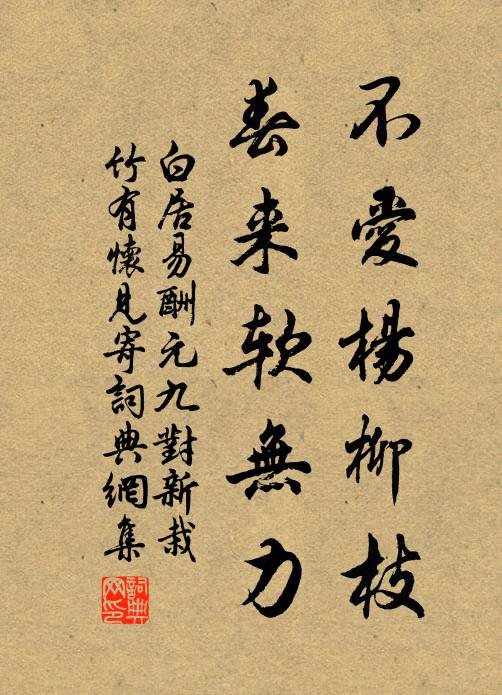 不愛楊柳枝
春来软無力
白居易酬元九對新栽
竹有懷見寄詞典網集
詞典网印